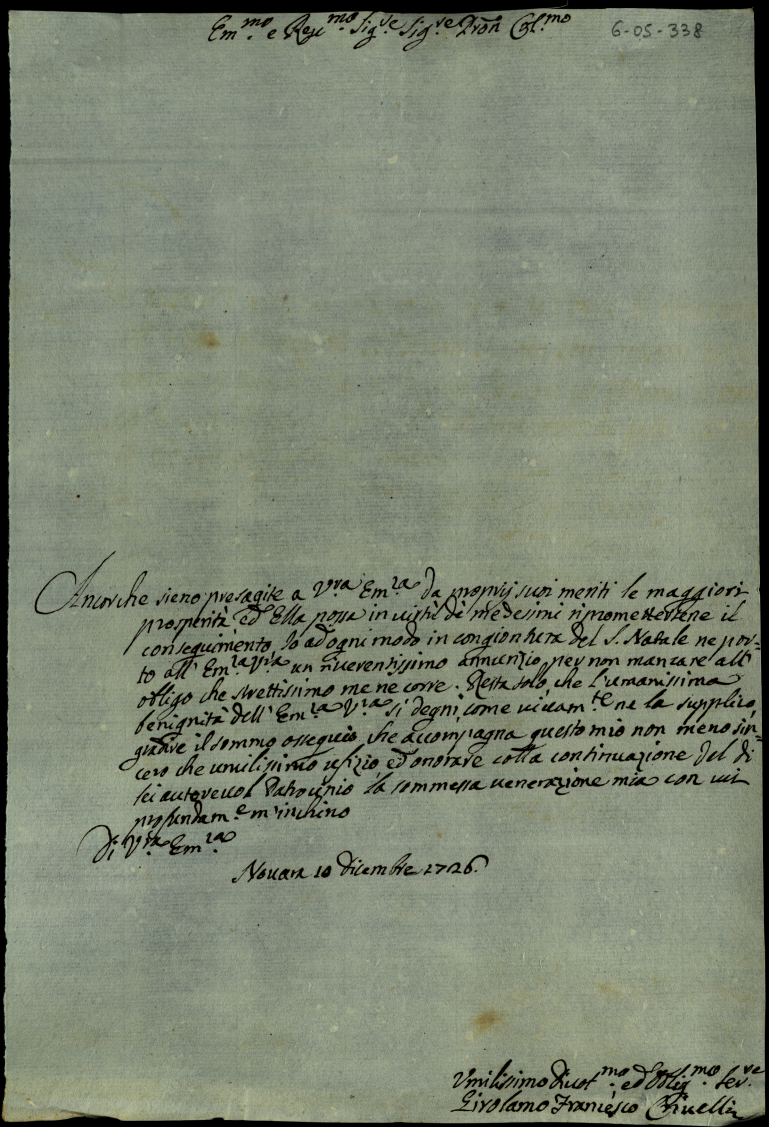 Em.mo e Reu.mo Sig.re Sig.re Pron Col.mo
6-05-338
Ancorche sieno presagite a V.ra Em.za da proprij suoi meriti le maggiori
prosperità ed Ella possa in uirtù de medesimi ripromettersene il
conseguimento, Io ad ogni modo in congiontura del S. Natale ne por=
to all' Em.za V.ra un riuerentissimo annunzio per non mancare all'
obligo che strettissimo me ne corre. Resta solo, che l'umanissima
benignità dell' Em.za V.ra si degni, come uiuam.te ne la supplico,
gradire il sommo ossequio, che accompagna questo mio non meno sin=
cero che umilissimo ufizio, ed onorare colla continuazione del di
lei autoreuol Patrocinio la sommessa uenerazione mia con cui
profundam.e m'inchino
Di V.ra Em.za
Nouara 10 Dicembre 1726.
Vmilissimo Diuot.mo ed Oblig.mo Ser.re
Girolamo Francesco Criuelli